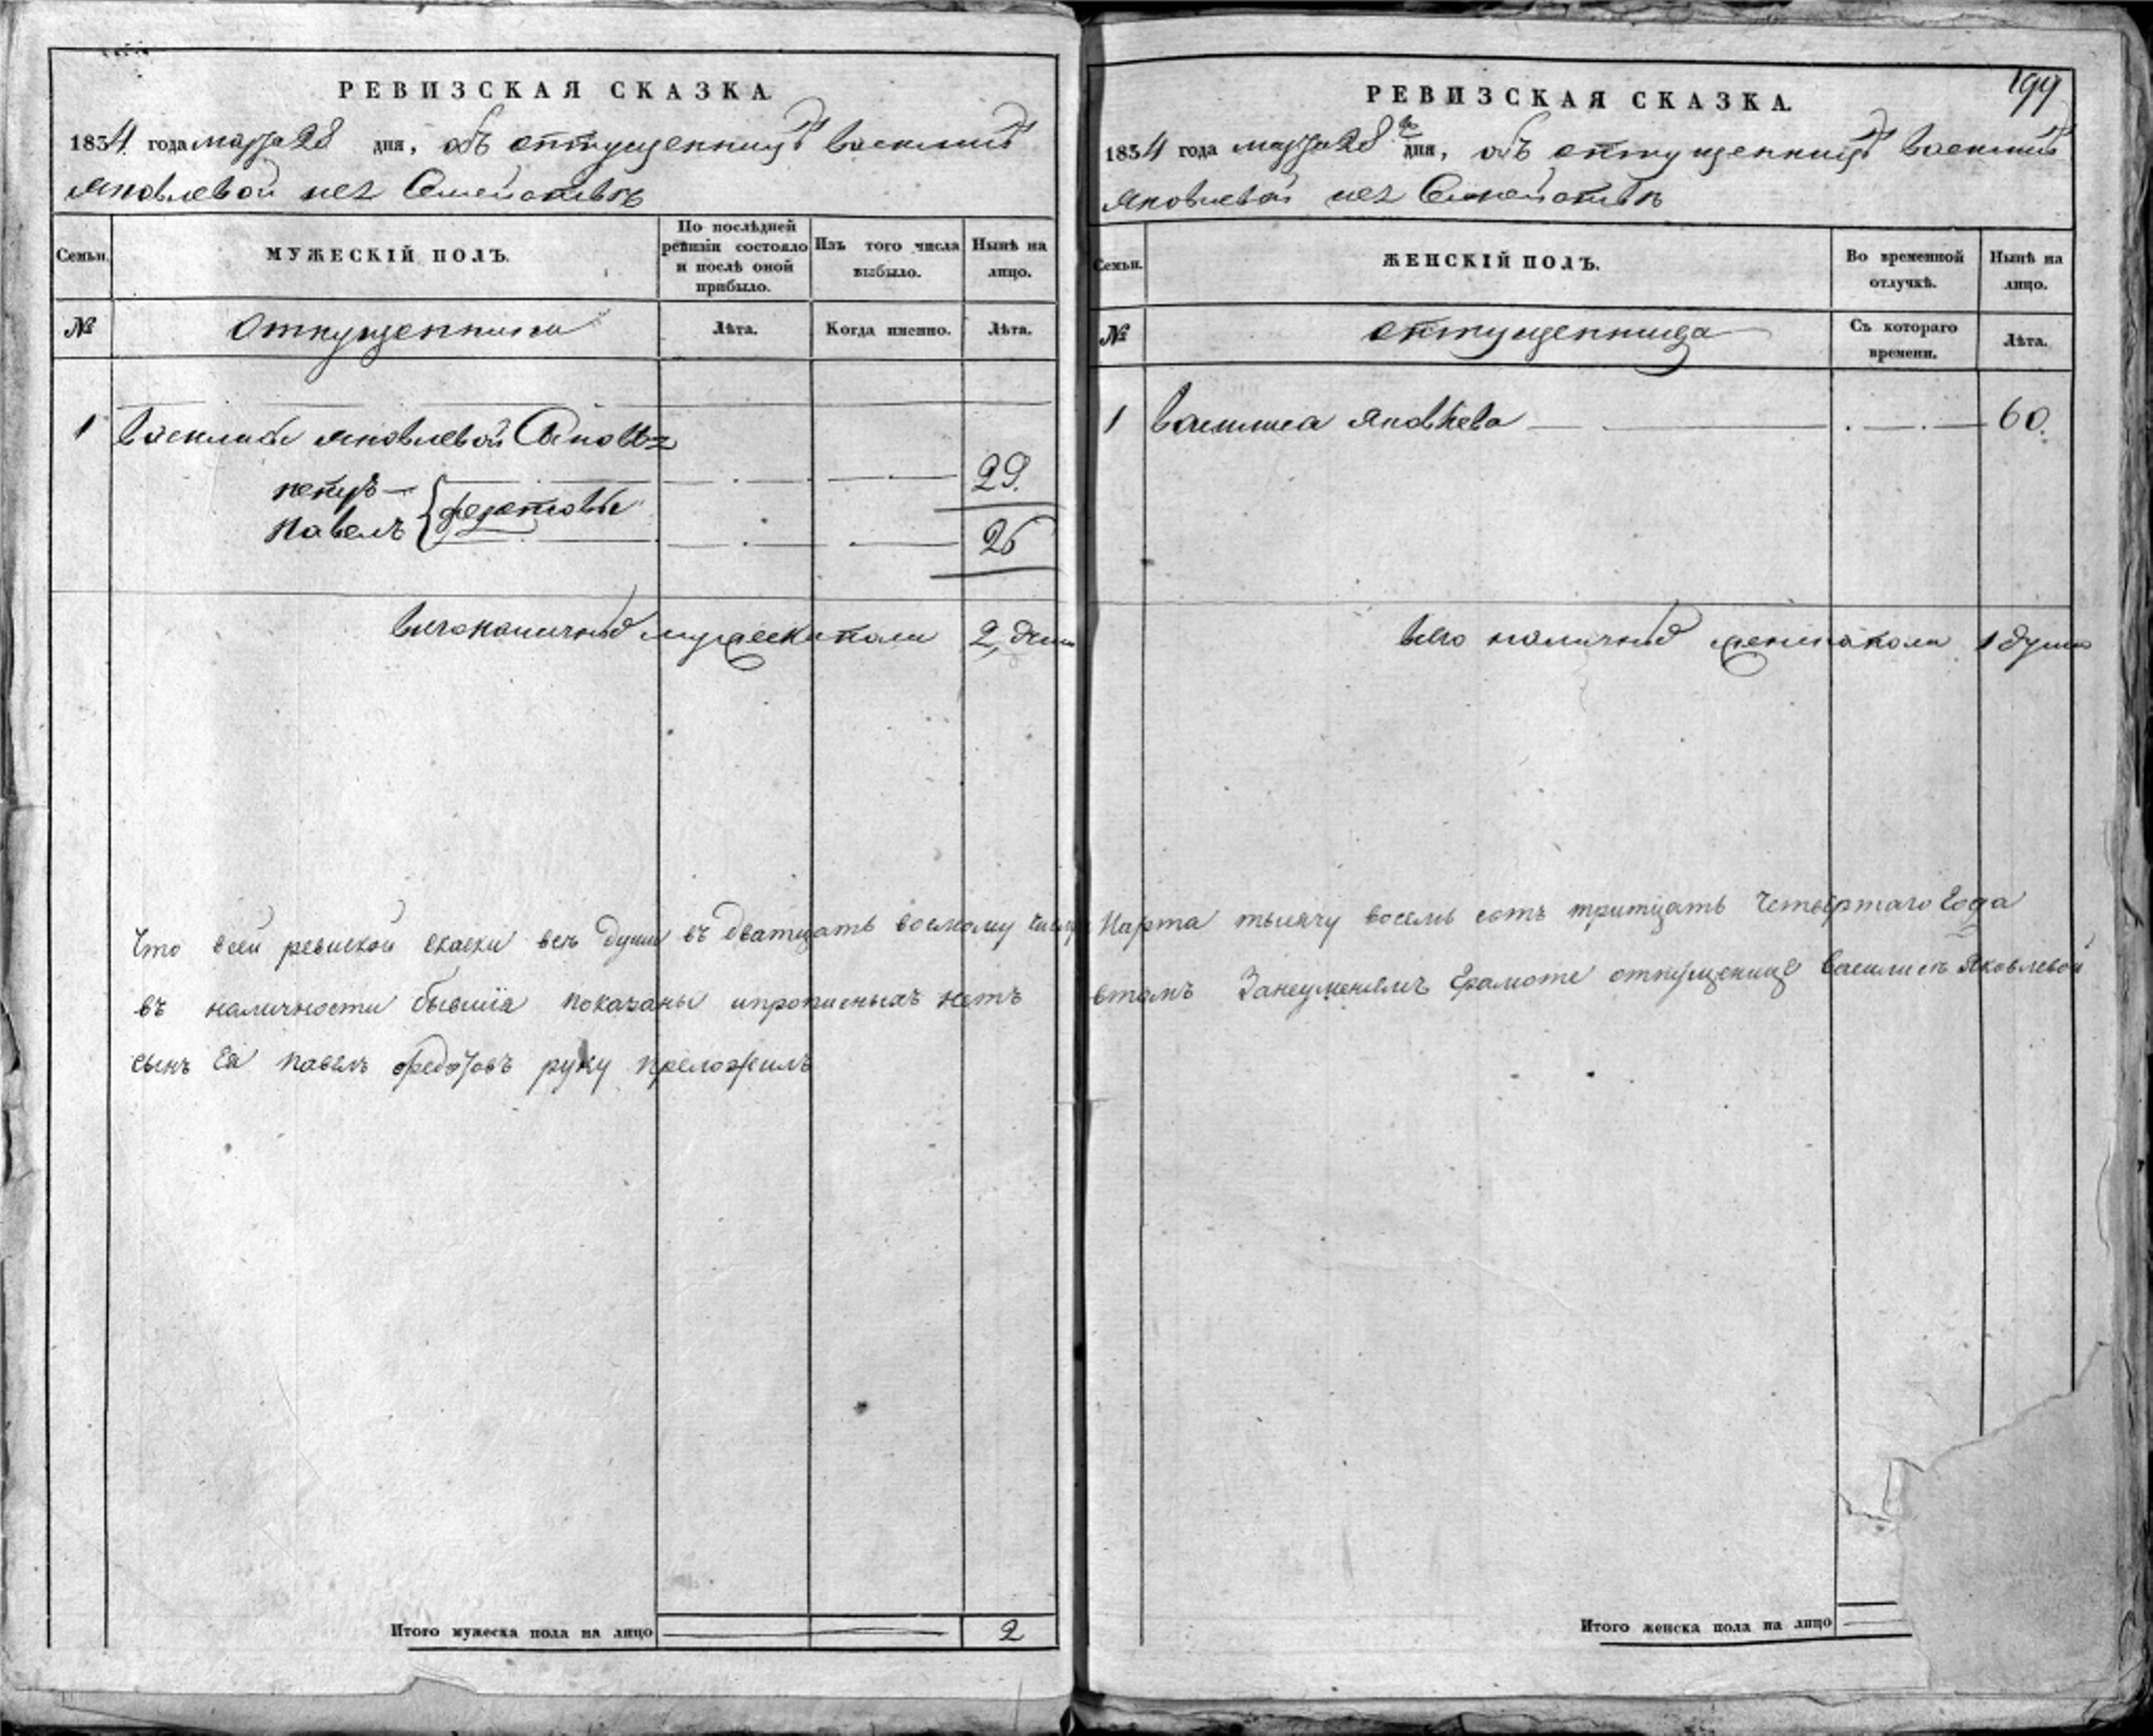 РЕВИЗСКАЯ СКАЗКА.
1834 года марта 28 дня, объ отпущенницѣ Василисѣ
Яковлевой иеѧ Семействѣ
Семьи.
МУЖЕСКІЙ ПОЛЪ.
По послѣдней ревизіи состояло и послѣ оной прибыло.
Изъ того числа выбыло.
Нынѣ на лицо.
№
Лѣта.
Когда именно.
Лѣта.
1 Василисы Яковлевой Сыновьѧ
Петръ
29.
Федотовы
Павелъ
26
Всего наличныхъ мужеска пола 2, души
Что всей ревиской скаски всѣ души въ дватцать восмому числу
въ наличности бывшія показаны ипрописныхъ нетъ
сынъ Ея Павелъ Федотовъ руку преложилъ
Итого мужеска пола на лицо 2
199
РЕВИЗСКАЯ СКАЗКА.
1834 года марта 28 дня, объ отпущенницѣ Василисѣ
Яковлевой иеѧ Семействѣ
Семьи.
ЖЕНСКІЙ ПОЛЪ.
Во временной отлучкѣ.
Нынѣ на лицо.
№
отпущенница
Съ котораго времени.
Лѣта.
1 Василиса Яковлева 60.
Всего наличныхъ женска пола 1 душа
Марта тысячу восемь сотъ тритцать Четвертаго Года
втомъ Занеуменіемъ Грамоте отпущенице Василисѣ Яковлевой
Итого женска пола на лицо